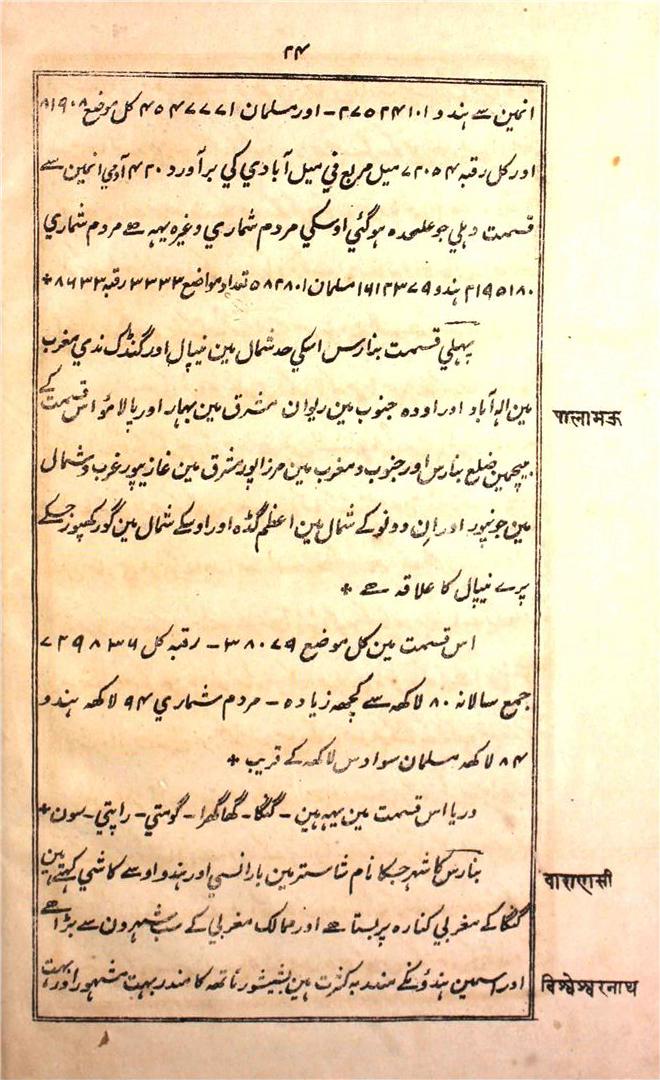 ۲۴
انمین سے ہندو ۲۷۵۲۴۱۰۱ - اور مسلمان ۴۵۴۷۷۷۱ کل موضع ۸۱۹۰۸
اور کل رقبہ ۷۲۰۵۴ میل مربع فی میل آبادی کی برآورد ۴۲۰ آدمی انمین سے
قسمت دہلی جو علٰحدہ ہو گئی اوسکی مردم شماری وغیرہ یہہ ہے مردم شماری
۲۱۹۵۱۸۰ ہندو ۱۶۱۲۳۷۹ مسلمان ۵۸۲۸۰۱ تعداد مواضع ۳۳۳۳ رقبہ ۸۶۳۳ +
پہلی قسمت بنارس اسکی حد شمال مین نیپال اور گنڈک ندی مغرب
مین الہ آباد اور اودہ جنوب مین ریوان مشرق مین بہار اور پالامؤ اس قسمت کے
بیچمین ضلع بنارس اور جنوب و مغرب مین مرزاپور مشرق مین غازیپور غرب و شمال
مین جونپور اور ان دونو کے شمال مین اعظم گڈہ اور اوسکے شمال مین گورکھپور جسکے
پرے نیپال کا علاقہ ہے +
اس قسمت مین کل موضع ۳۸۰۷۹ - رقبہ کل ۷۲۹۸۳۶
جمع سالانہ ۸۰ لاکھہ سے کچھہ زیادہ - مردم شماری ۹۴ لاکھہ ہندو
۸۴ لاکھہ مسلمان سوا دس لاکھہ کے قریب +
دریا اس قسمت مین یہہ ہین - گنگا - گھاگھرا - گومتی - راپتی - سون +
بنارس کا شہر جسکا نام شاستر مین بارانسی اور ہندو اوسے کاشی کہتے ہین
گنگا کے مغربی کنارہ پر بستا ہے اور ممالک مغربی کے سب شہرون سے بڑا ہے
اور اسمین ہندؤنکے مندر بہ کثرت ہین بشیشور ناتھہ کا مندر بہت مشہور اور بہت
पालामऊ
वाराणसी
विश्वेश्वरनाथ